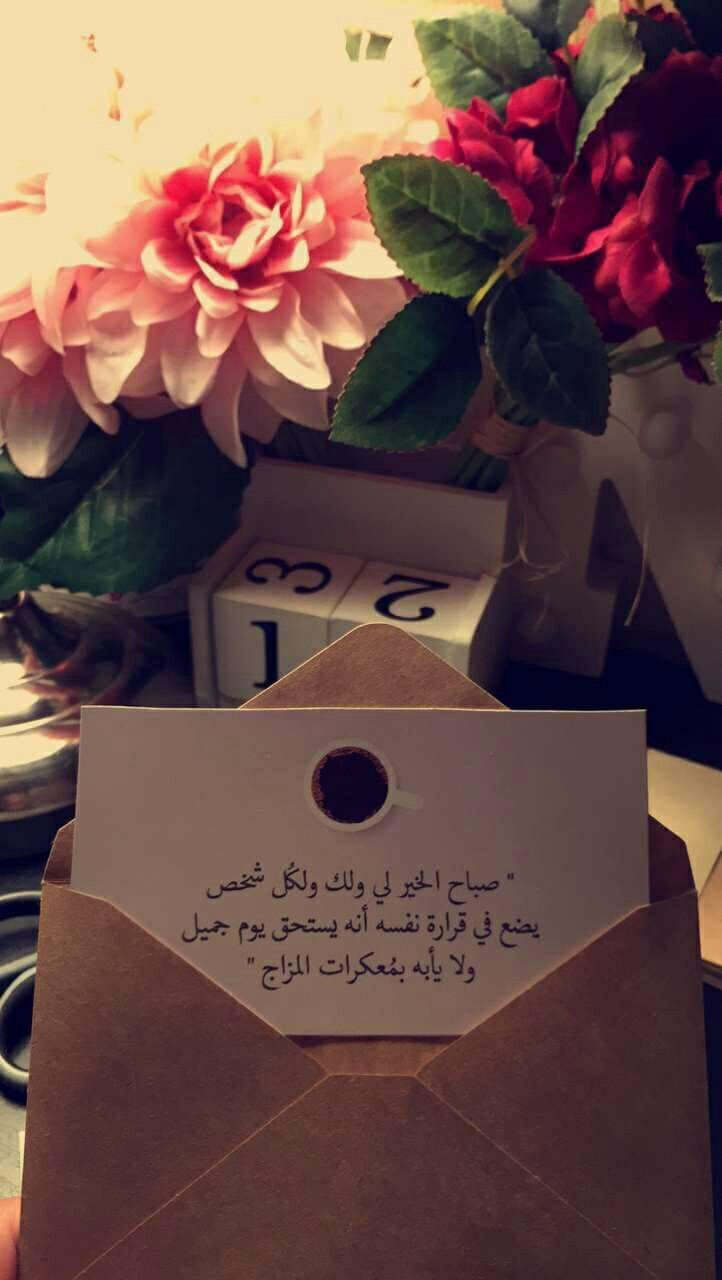 3 2
1
" صباح الخير لي ولك ولكُل شخص
يضع في قرارة نفسه أنه يستحق يوم جميل
ولا يأبه بمُعكرات المزاج "